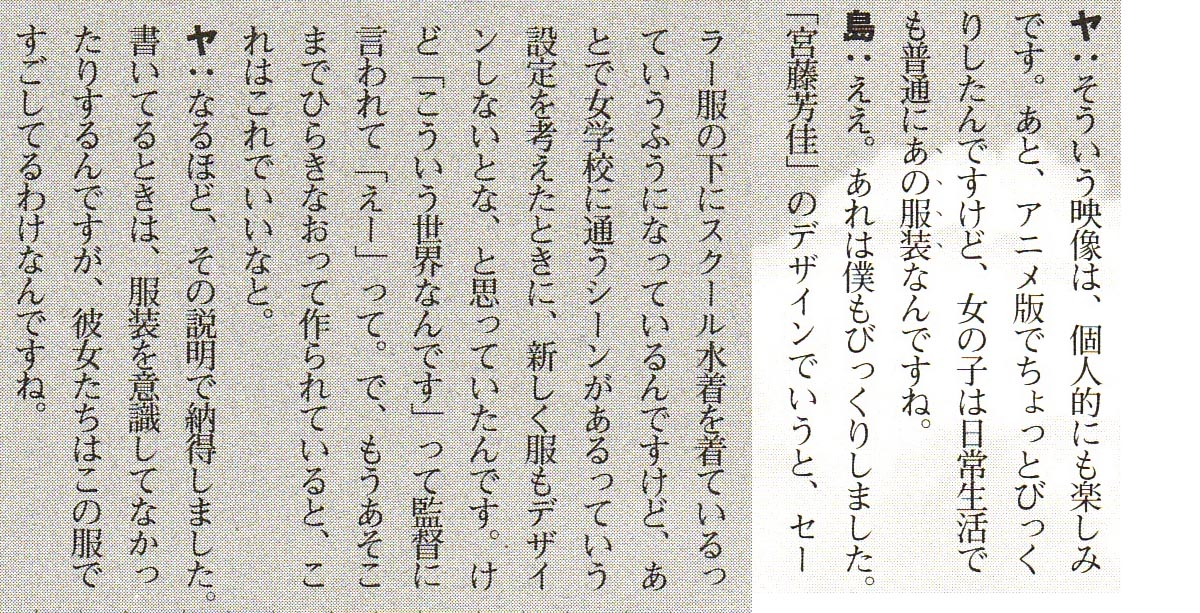 ヤ：そういう映像は、個人的にも楽しみ
です。あと、アニメ版でちょっとびっく
りしたんですけど、女の子は日常生活で
も普通にあの服装なんですね。
島：ええ。あれは僕もびっくりしました。
「宮藤芳佳」のデザインでいうと、セー
ラー服の下にスクール水着を着ているっ
ていうふうになっているんですけど、あ
とで女学校に通うシーンがあるっていう
設定を考えたときに、新しく服もデザイ
ンしないとな、と思っていたんです。け
ど「こういう世界なんです」って監督に
言われて「えー」って。で、もうあそこ
までひらきなおって作られていると、こ
れはこれでいいなと。
ヤ：なるほど、その説明で納得しました。
書いてるときは、服装を意識してなかっ
たりするんですが、彼女たちはこの服で
すごしてるわけなんですね。